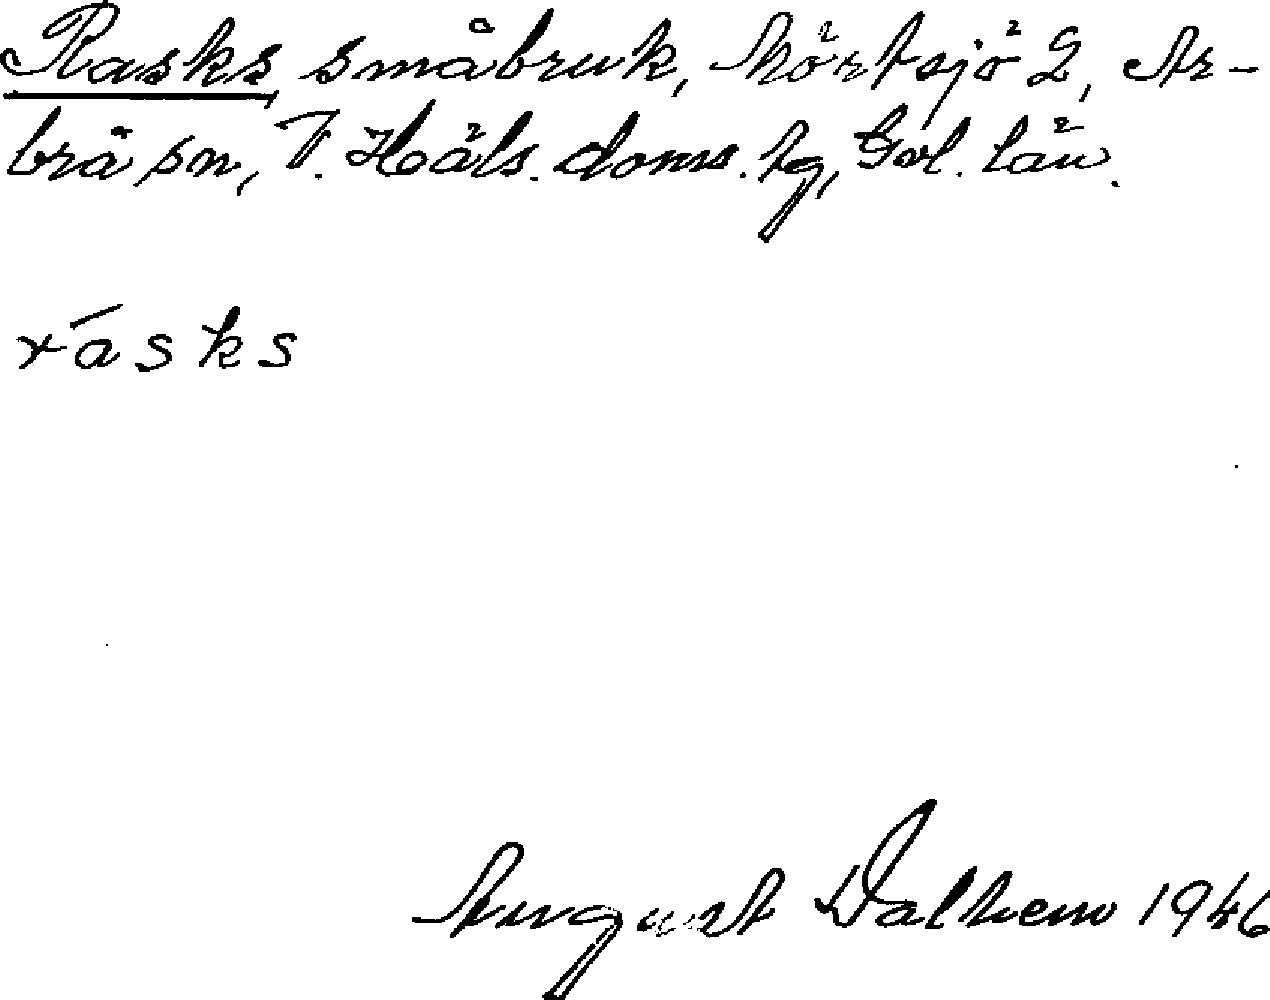 Rasks småbruk, Mörtsjö 2, Ar-
brå sn, V. Häls. doms. tg, Gvl. län.
rásks
August Dalhem 1946